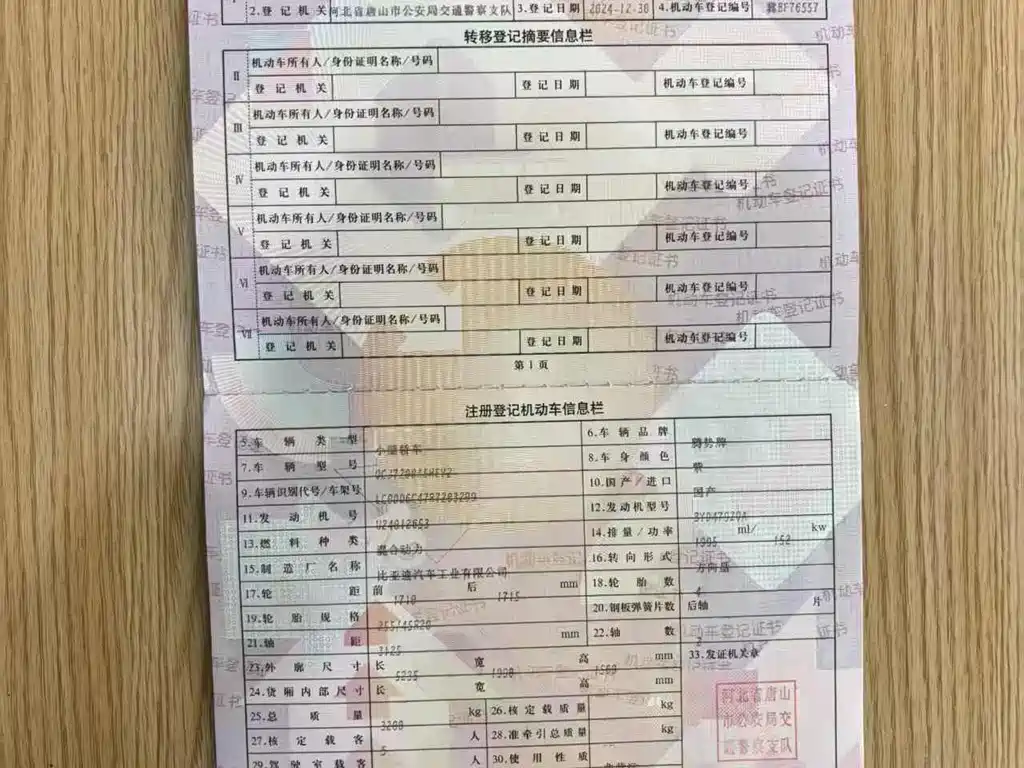 2.登记机关 河北省唐山市公安局交通警察支队 3.登记日期 2024-12-30 4.机动车登记编号 冀BF76557
转移登记摘要信息栏
Ⅱ 机动车所有人/身份证明名称/号码
登记机关 登记日期 机动车登记编号
Ⅲ 机动车所有人/身份证明名称/号码
登记机关 登记日期 机动车登记编号
Ⅳ 机动车所有人/身份证明名称/号码
登记机关 登记日期 机动车登记编号
Ⅴ 机动车所有人/身份证明名称/号码
登记机关 登记日期 机动车登记编号
Ⅵ 机动车所有人/身份证明名称/号码
登记机关 登记日期 机动车登记编号
Ⅶ 机动车所有人/身份证明名称/号码
登记机关 登记日期 机动车登记编号
第1页
注册登记机动车信息栏
5.车辆类型 小型轿车 6.车辆品牌 腾势牌
7.车辆型号 8.车身颜色
9.车辆识别代号/车架号 10.国产/进口 国产
11.发动机号 12.发动机型号
13.燃料种类 混合动力 14.排量/功率 1995 ml/ 152 kw
15.制造厂名称 比亚迪汽车工业有限公司 16.转向形式 方向盘
17.轮距 前 1710 后 1715 mm 18.轮胎数 4
19.轮胎规格 255/45R20 20.钢板弹簧片数 后轴 片
21.轴距 3125 mm 22.轴数 2
23.外廓尺寸 长 5235 宽 1990 高 1500 mm 33.发证机关章
24.货厢内部尺寸 长 宽 高 mm
25.总质量 3200 kg 26.核定载质量 kg
27.核定载客 5 人 28.准牵引总质量 kg
29.驾驶室载客 人 30.使用性质
河北省唐山
市公安局交
通警察支队